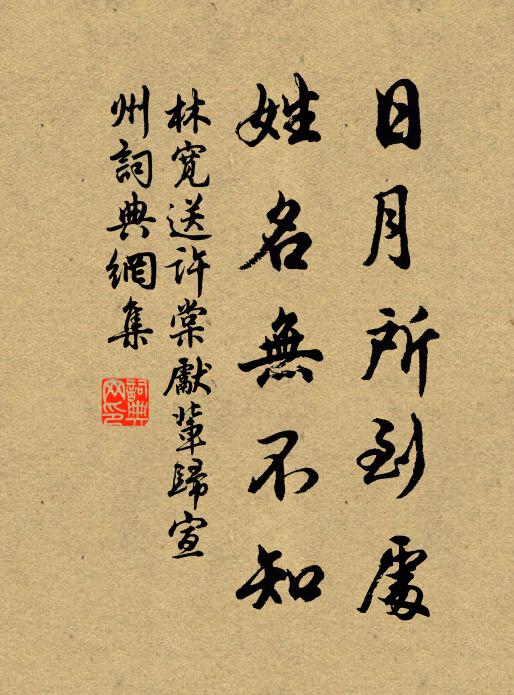 日月所到處
姓名無不知
林寬送許棠獻輩歸宣
州詞典網集
詞典網印